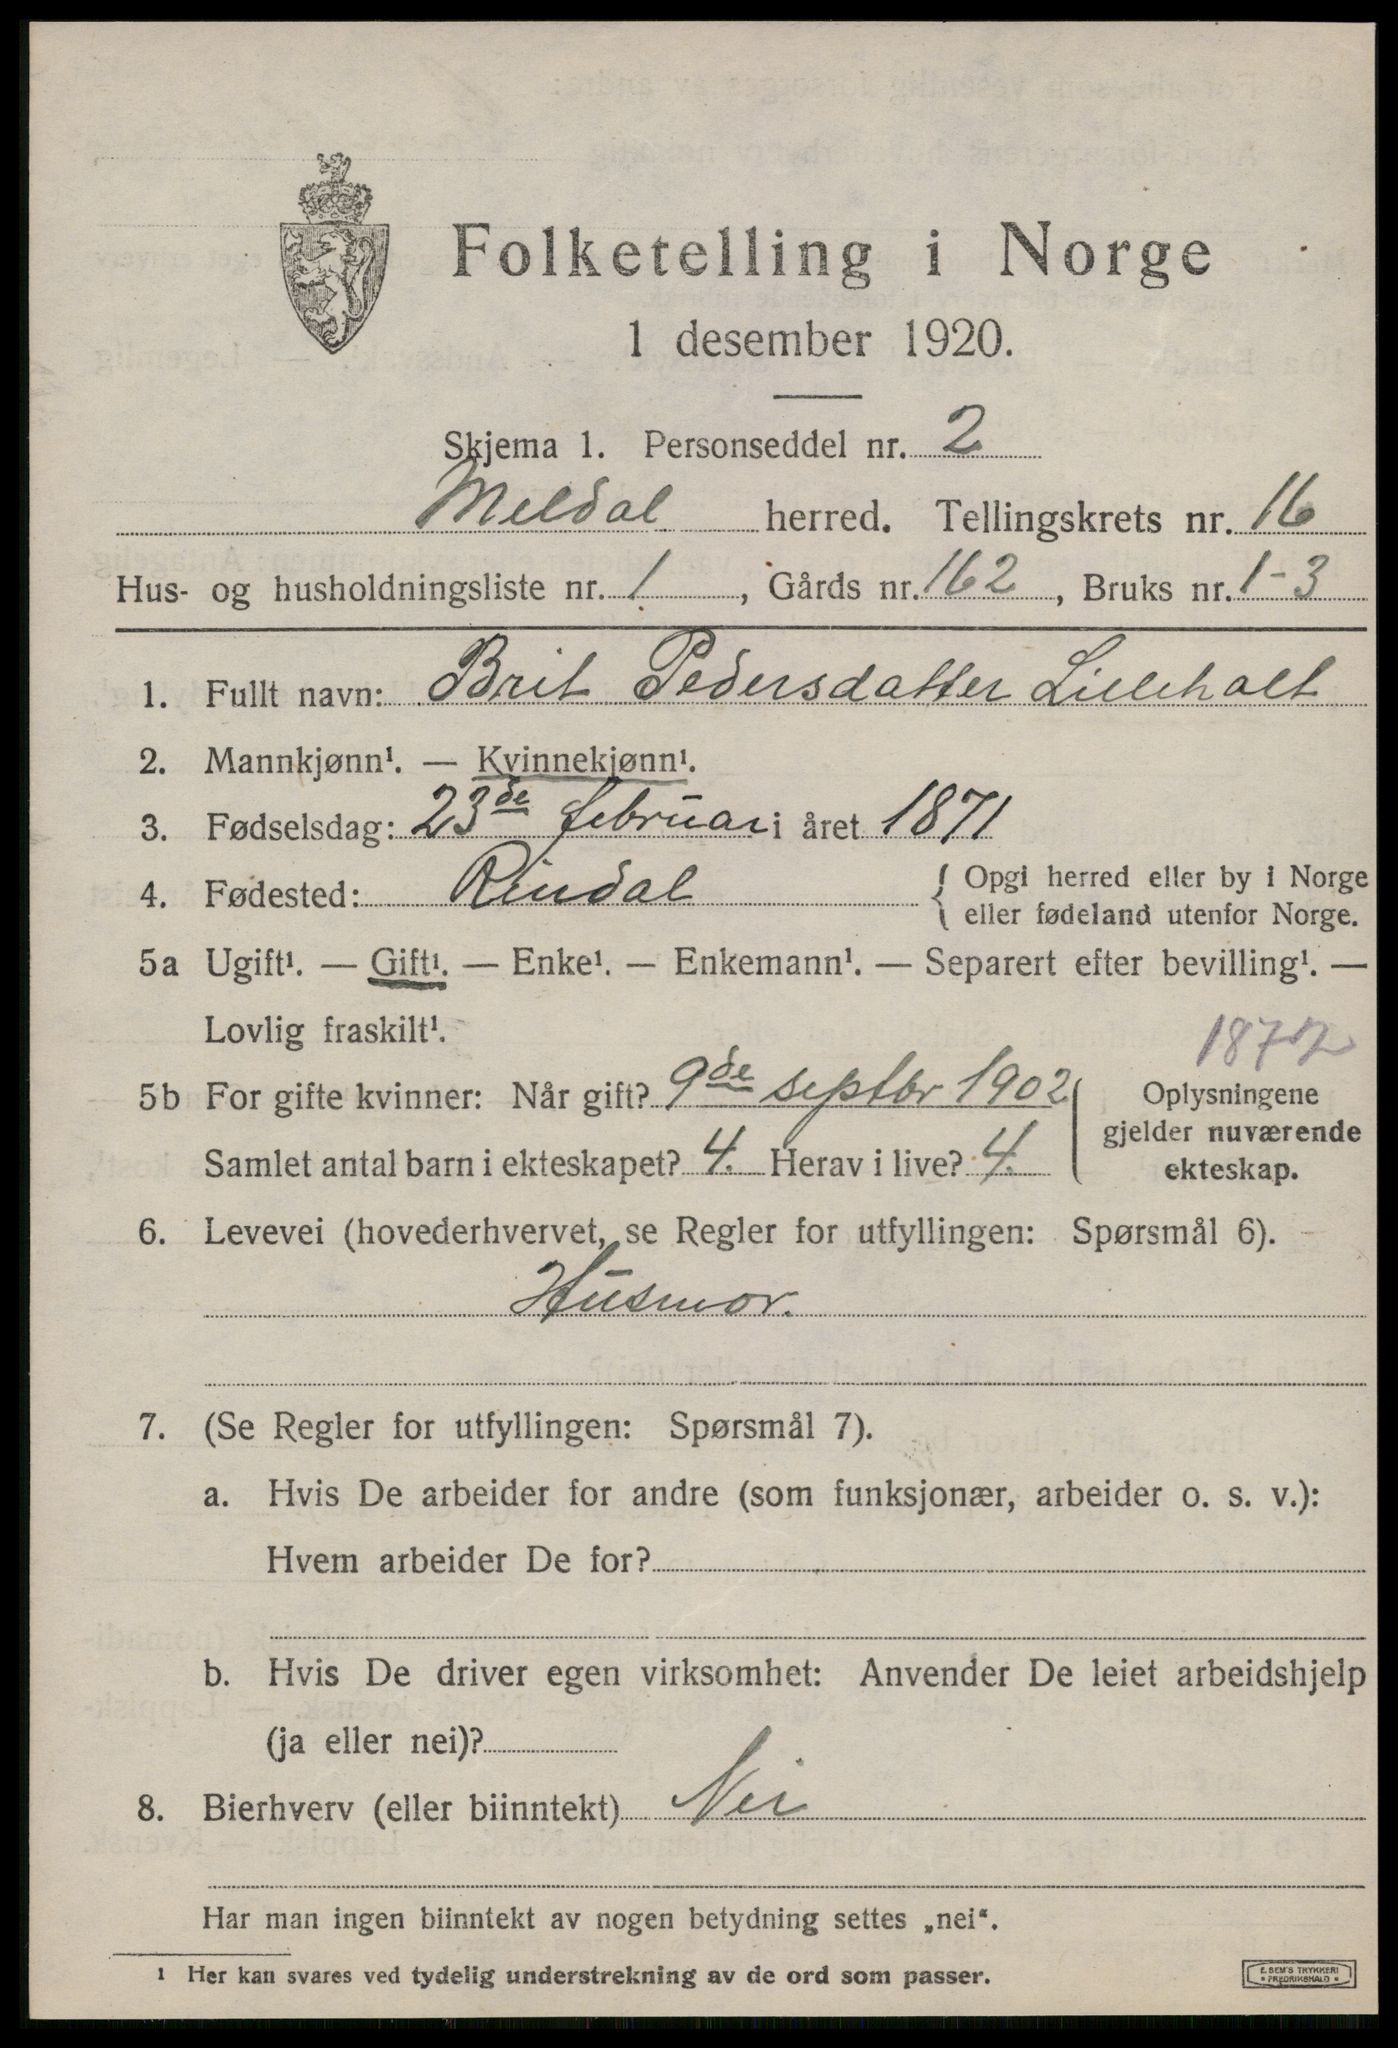 Folketelling i Norge
1 desember 1920.
Skjema 1. Personseddel nr. 2
Meldal herred. Tellingskrets nr. 16
Hus- og husholdningsliste nr. 1, Gårds nr. 162, Bruks nr. 1-3
1. Fullt navn: Brit Pedersdatter Lilleholt
2. Mannkjønn¹. — Kvinnekjønn¹.
3. Fødselsdag: 23de februar i året 1871
4. Fødested: Rindal { Opgi herred eller by i Norge
eller fødeland utenfor Norge.
5a Ugift¹. — Gift¹. — Enke¹. — Enkemann¹. — Separert efter bevilling¹. —
Lovlig fraskilt¹.
1872
5b For gifte kvinner: Når gift? 9de septbr 1902 Oplysningene
gjelder nuværende
Samlet antal barn i ekteskapet? 4. Herav i live? 4. ekteskap.
6. Levevei (hovederhvervet, se Regler for utfyllingen: Spørsmål 6).
Husmor.
7. (Se Regler for utfyllingen: Spørsmål 7).
a. Hvis De arbeider for andre (som funksjonær, arbeider o. s. v.):
Hvem arbeider De for?
b. Hvis De driver egen virksomhet: Anvender De leiet arbeidshjelp
(ja eller nei)?
8. Bierhverv (eller biinntekt) Nei
Har man ingen biinntekt av nogen betydning settes „nei“.
¹ Her kan svares ved tydelig understrekning av de ord som passer.
E. SEM'S TRYKKERI
FREDRIKSHALD